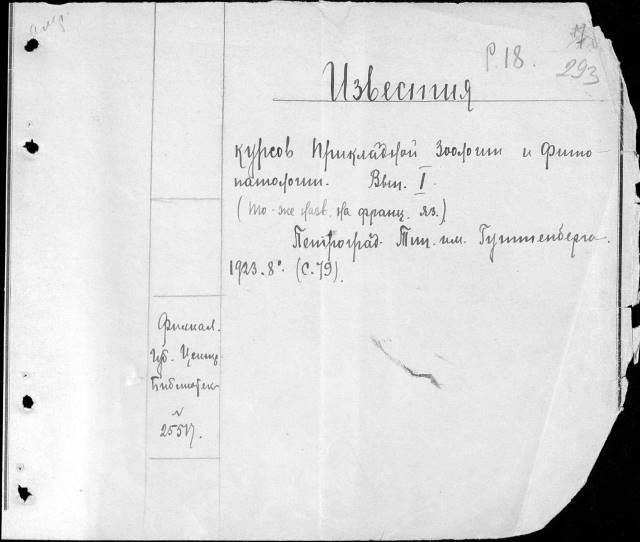 Р 18.
293
Известия
курсов Прикладной Зоологии и Фито-
патологии. Вып. I.
(То-же назв. на франц. яз.)
Петроград. Тип. им. Гуттенберга.
1923. 8°. (С. 79).
Филиал.
Губ. Центр.
Библиотек
№